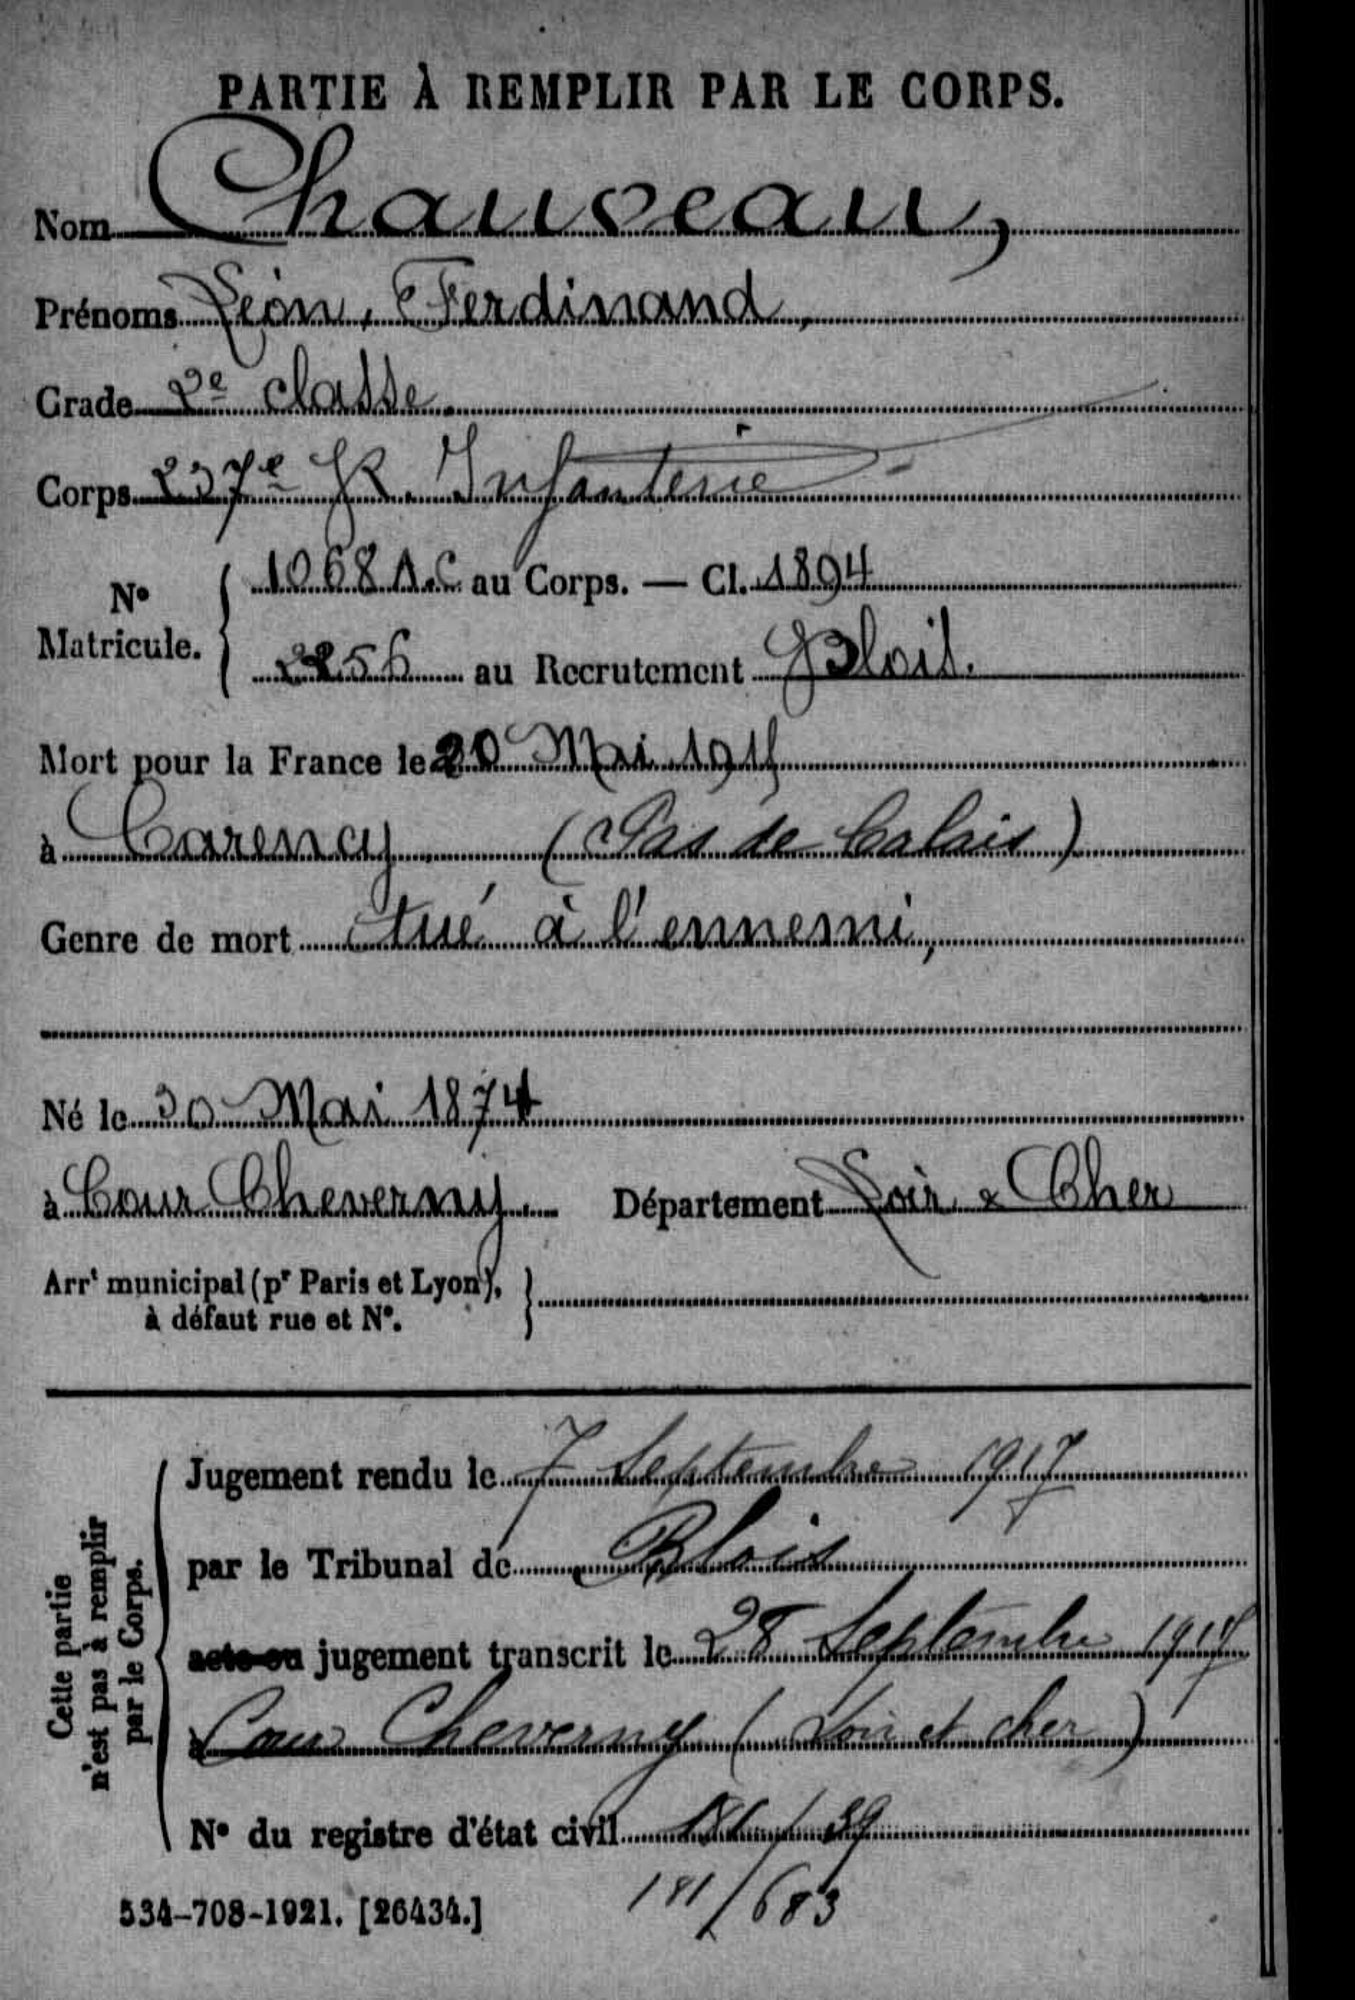 PARTIE À REMPLIR PAR LE CORPS.
Nom Chauveau,
Prénoms Léon, Ferdinand,
Grade 2e classe.
Corps 237e R. Infanterie
N° Matricule. 1068 A.C au Corps. — Cl. 1894
2256 au Recrutement Blois.
Mort pour la France le 20 Mai 1915
à Carency (Pas de Calais)
Genre de mort tué à l'ennemi,
Né le 30 Mai 1874
à Cour Cheverny. Département Loir & Cher
Arrt municipal (pr Paris et Lyon),
à défaut rue et N°.
Cette partie
n'est pas à remplir
par le Corps.
Jugement rendu le 7 Septembre 1917
par le Tribunal de Blois
acte ou jugement transcrit le 28 Septembre 1917
à Cour Cheverny (Loir et cher)
N° du registre d'état civil 181/39
534-708-1921. [26434.] 181/683